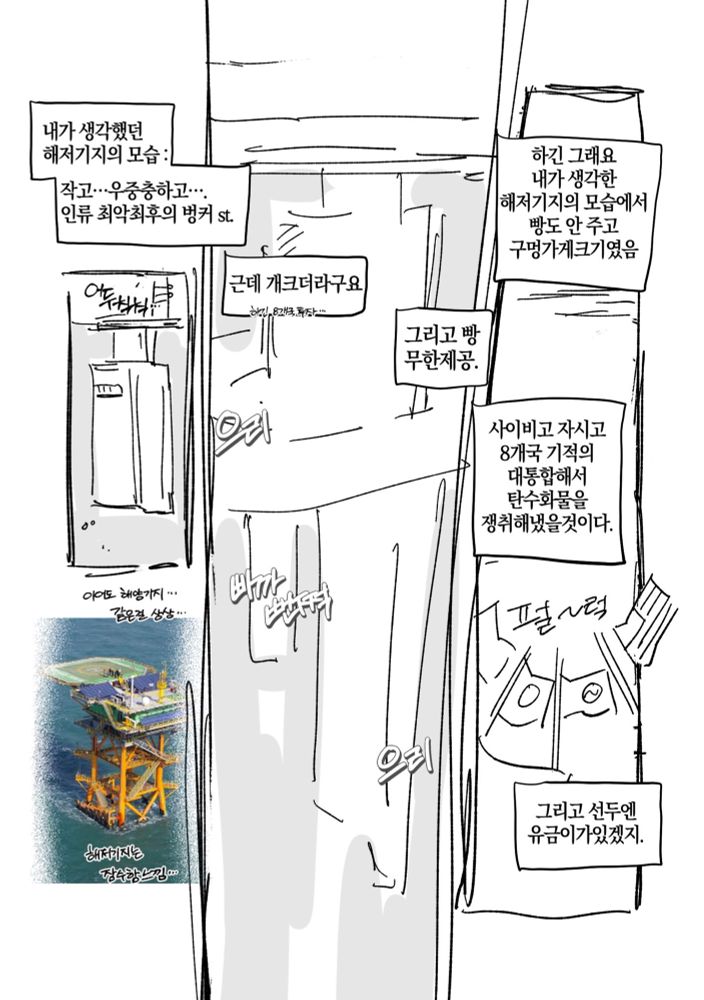 내가 생각했던
해저기지의 모습 :
작고…우중충하고….
인류 최악최후의 벙커 st.
어두
칙칙…
이어도 해양기지…
같은걸 상상…
해저기지는
잠수함느낌…
근데 개크더라구요
하긴 8개국 투자…
그리고 빵
무한제공.
으리
삐까
뻔쩍
으리
하긴 그래요
내가 생각한
해저기지의 모습에서
빵도 안 주고
구멍가게크기였음
사이비고 자시고
8개국 기적의
대통합해서
탄수화물을
쟁취해냈을것이다.
펄~럭
그리고 선두엔
유금이가있겠지.